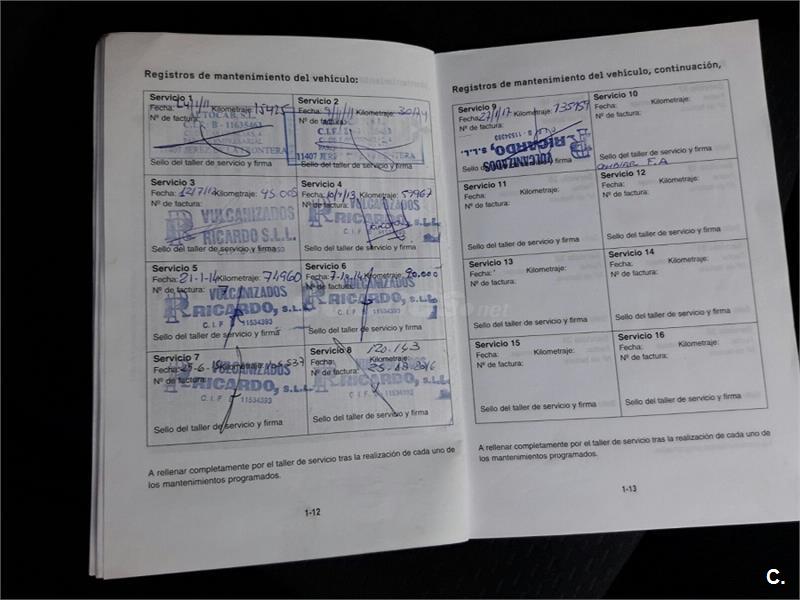 Registros de mantenimiento del vehículo:
Servicio 1
Fecha: Kilometraje: 15425
Nº de factura:
C.I.F. B - 11635463
JEREZ LA FRONTERA
Sello del taller de servicio y firma
Servicio 2
Fecha: Kilometraje:
Nº de factura:
C.I.F.
11407 JEREZ FRONTERA
Sello del taller de servicio y firma
Servicio 3
Fecha: 12/7/12 Kilometraje: 45.005
Nº de factura:
VULCANIZADOS
RICARDO S.L.L.
Sello del taller de servicio y firma
Servicio 4
Fecha: 10/7/13 Kilometraje: 57967
Nº de factura:
VULCANIZADOS
RICARDO S.L.L.
C.I.F.
Sello del taller de servicio y firma
Servicio 5
Fecha: 31-1-14 Kilometraje: 74960
Nº de factura:
VULCANIZADOS
RICARDO, S.L.L.
C.I.F. 11534393
Sello del taller de servicio y firma
Servicio 6
Fecha: 7-10-14 Kilometraje: 90.000
Nº de factura:
VULCANIZADOS
RICARDO, S.L.L.
C.I.F. 11534393
Sello del taller de servicio y firma
Servicio 7
Fecha: Kilometraje: 537
Nº de factura:
VULCANIZADOS
RICARDO, S.L.L.
C.I.F. 11534393
Sello del taller de servicio y firma
Servicio 8
120.143
Fecha: Kilometraje:
Nº de factura: 2016
RICARDO, S.L.L.
C.I.F. 11534393
Sello del taller de servicio y firma
A rellenar completamente por el taller de servicio tras la realización de cada uno de
los mantenimientos programados.
1-12
Registros de mantenimiento del vehículo, continuación,
Servicio 9
Fecha: 27/1/17 Kilometraje:
Nº de factura:
VULCANIZADOS
RICARDO, S.L.L.
B 11534393
Sello del taller de servicio y firma
Servicio 10
Fecha: Kilometraje:
Nº de factura:
Sello del taller de servicio y firma
CAMBIAR F.A
Servicio 11
Fecha: Kilometraje:
Nº de factura:
Sello del taller de servicio y firma
Servicio 12
Fecha: Kilometraje:
Nº de factura:
Sello del taller de servicio y firma
Servicio 13
Fecha: Kilometraje:
Nº de factura:
Sello del taller de servicio y firma
Servicio 14
Fecha: Kilometraje:
Nº de factura:
Sello del taller de servicio y firma
Servicio 15
Fecha: Kilometraje:
Nº de factura:
Sello del taller de servicio y firma
Servicio 16
Fecha: Kilometraje:
Nº de factura:
Sello del taller de servicio y firma
A rellenar completamente por el taller de servicio tras la realización de cada uno de
los mantenimientos programados.
1-13
C.